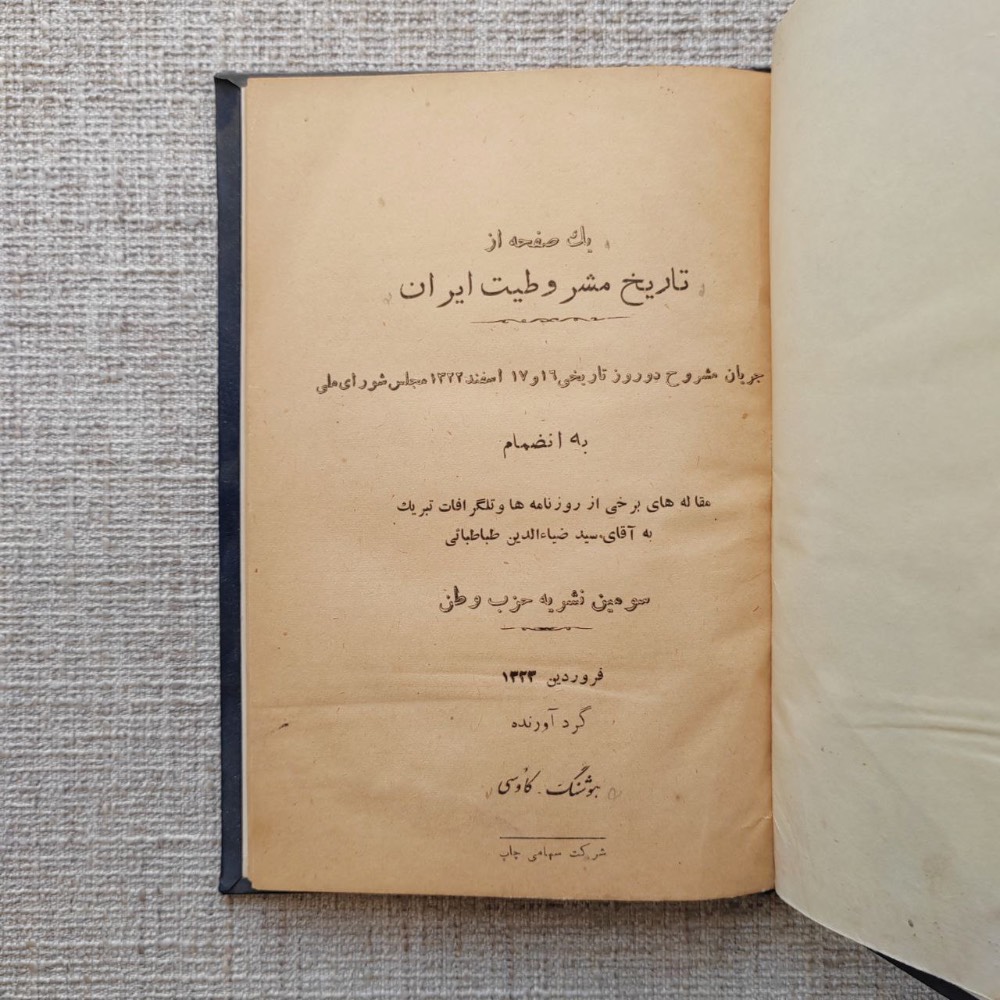 يك صفحه از
تاريخ مشروطيت ايران
جريان مشروح دوروز تاريخى ۱۶و۱۷ اسفند۱۳۲۲مجلس شوراى ملى
به انضمام
مقاله هاى برخى از روزنامه ها و تلگرافات تبريك
به آقاى سيد ضياءالدين طباطبائى
سومين نشريه حزب وطن
فروردين ۱۳۲۳
گرد آورنده
هوشنگ - كاوسى
شركت سهامى چاپ